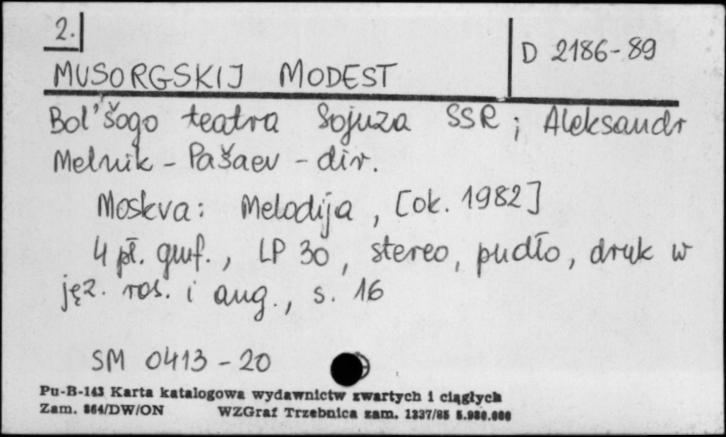 2.
D 2186-89
MUSORGSKIJ MODEST
Bol'šogo teatra Sojuza SSR ; Aleksandr
Melnik - Pašaev - dir.
Moskva : Melodija , [ok. 1982]
4 pł. gmf. , LP 30 , stereo, pudło, druk w
jęz. ros. i ang., s. 16
SM 0413 - 20
Pu-B-143 Karta katalogowa wydawnictw zwartych i ciągłych
Zam. 864/DW/ON WZGraf Trzebnica zam. 1337/85 5.900.000